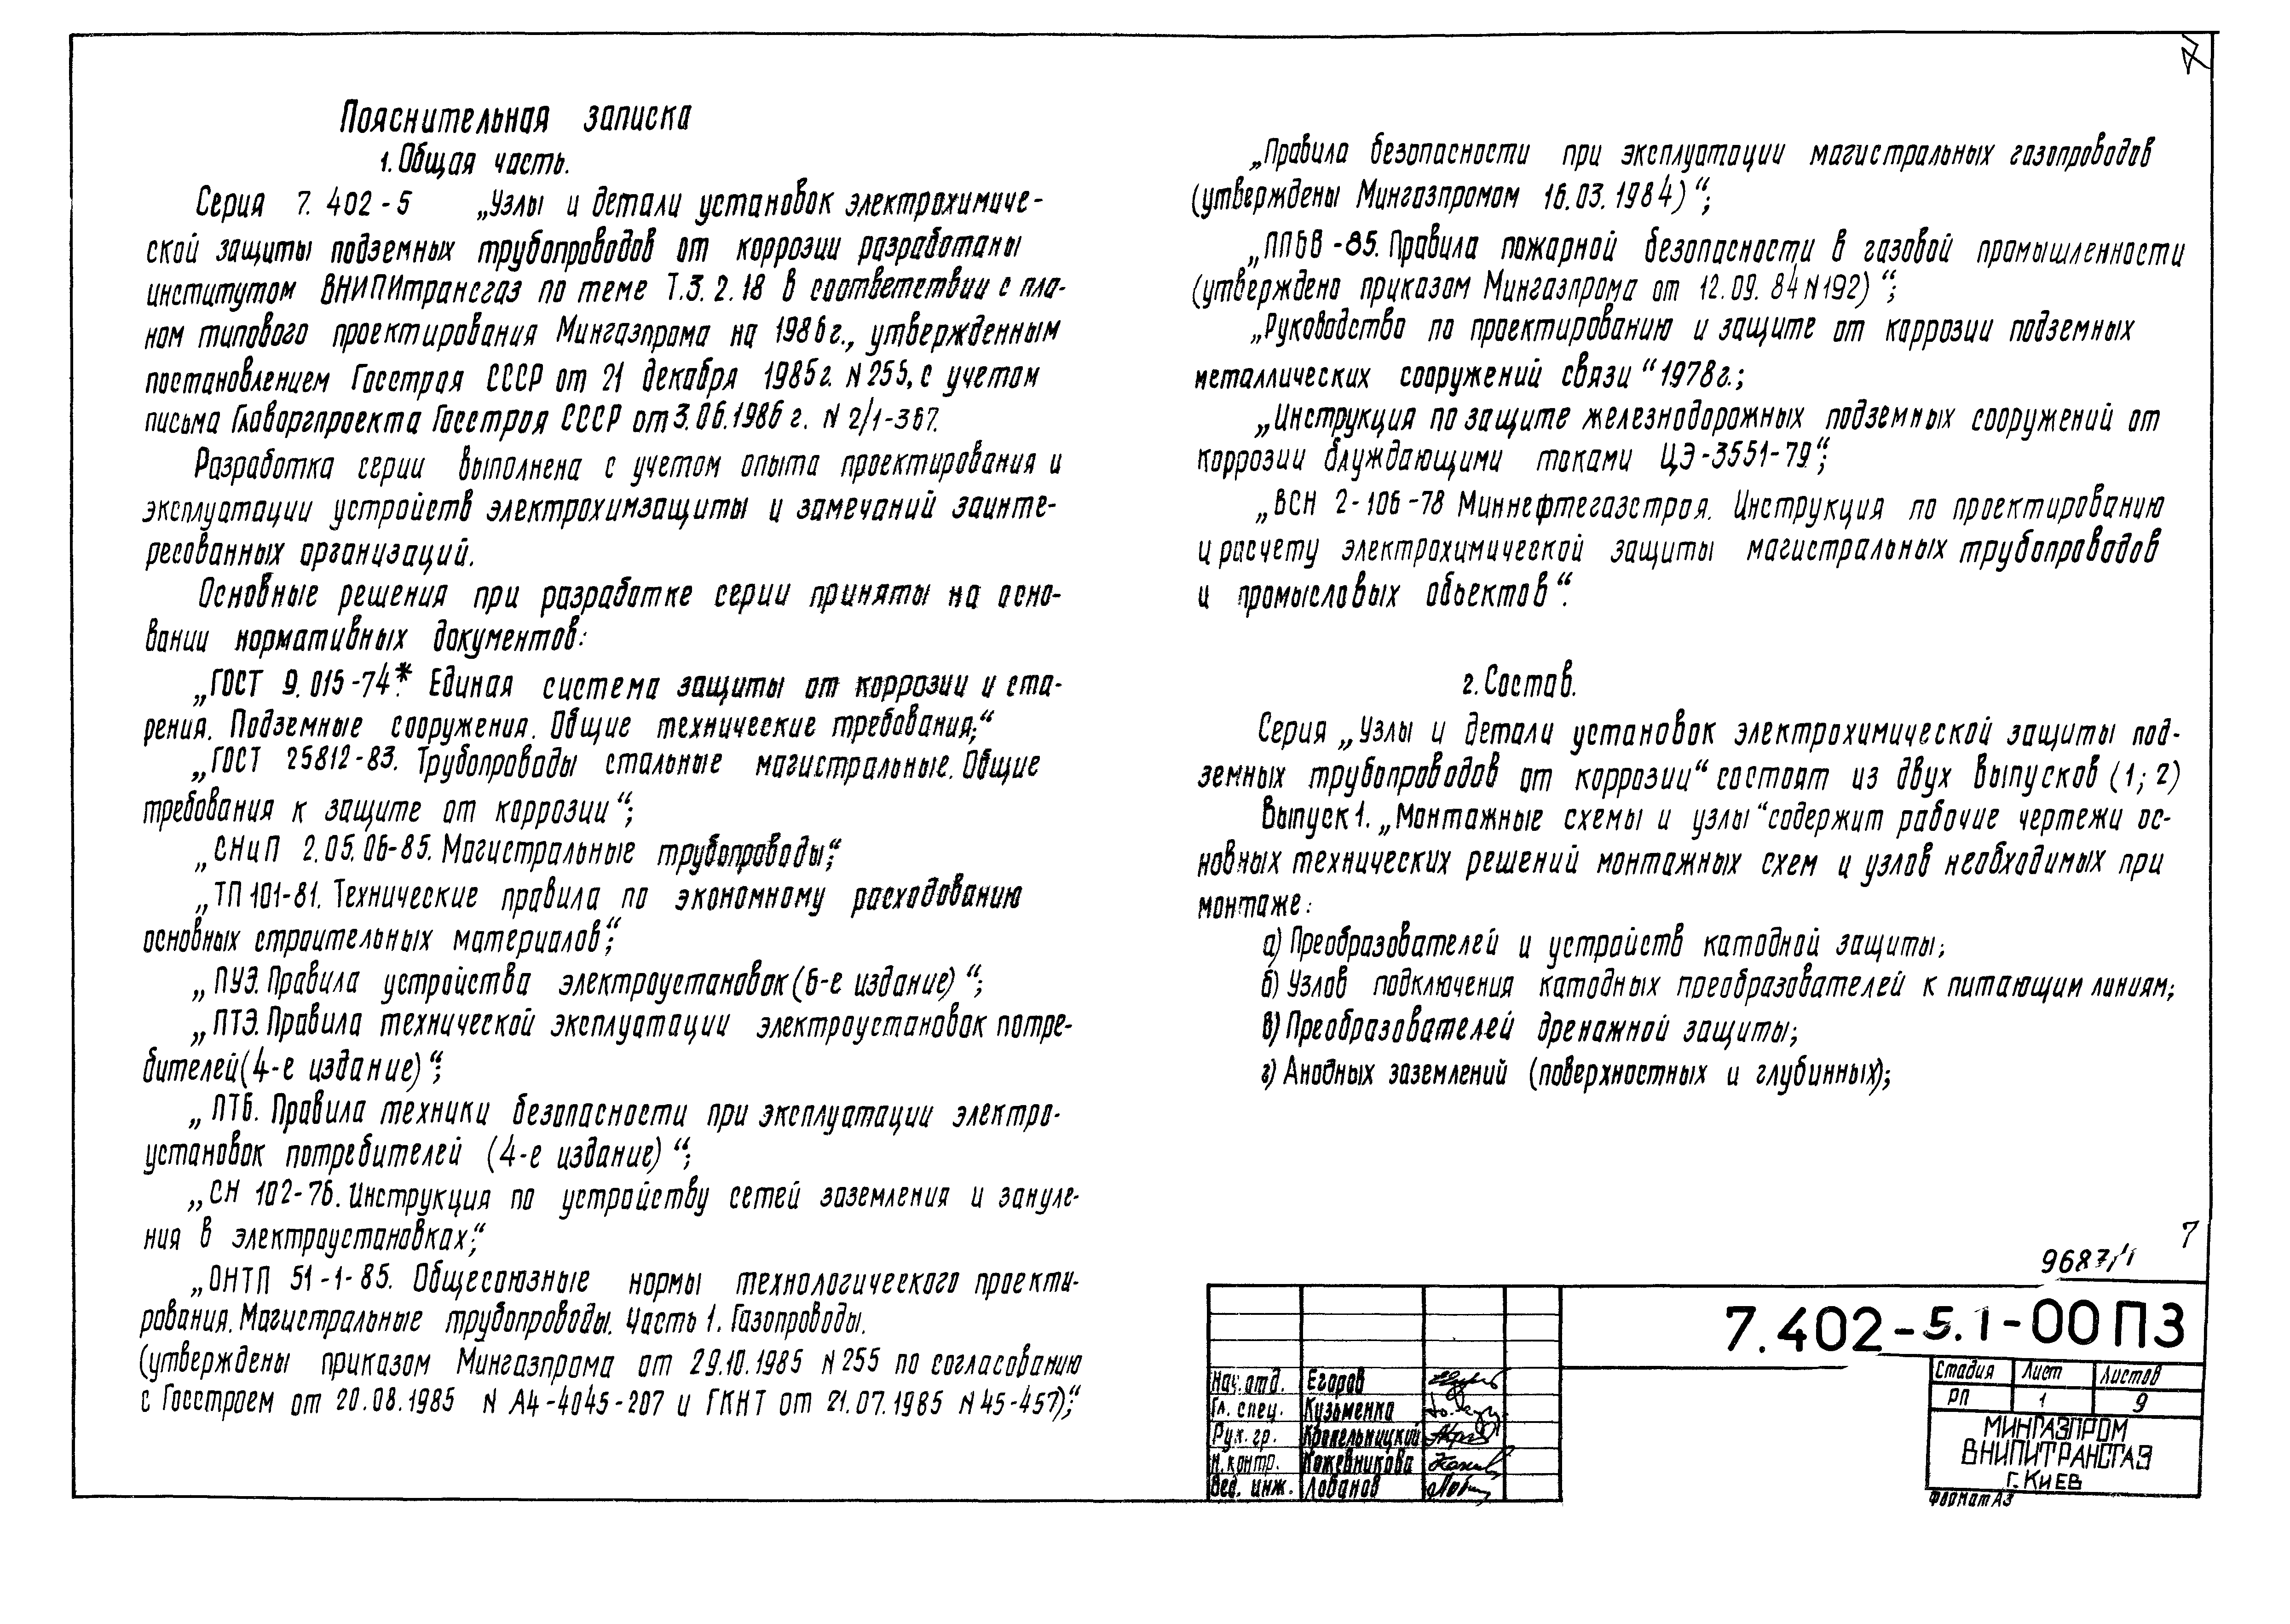 Пояснительная записка
1. Общая часть.
Серия 7. 402 - 5 „Узлы и детали установок электрохимиче-
ской защиты подземных трубопроводов от коррозии разработаны
институтом ВНИПИтрансгаз по теме Т.3.2.18 в соответствии с пла-
ном типового проектирования Мингазпрома на 1986г., утвержденным
постановлением Госстроя СССР от 21 декабря 1985г. N 255, с учетом
письма Главоргпроекта Госстроя СССР от 3.06.1986 г. N 2/1-367.
Разработка серии выполнена с учетом опыта проектирования и
эксплуатации устройств электрохимзащиты и замечаний заинте-
ресованных организаций.
Основные решения при разработке серии приняты на осно-
вании нормативных документов:
„ГОСТ 9.015-74*. Единая система защиты от коррозии и ста-
рения. Подземные сооружения. Общие технические требования;“
„ГОСТ 25812-83. Трубопроводы стальные магистральные. Общие
требования к защите от коррозии“;
„СНиП 2.05.06-85. Магистральные трубопроводы“;
„ТП 101-81. Технические правила по экономному расходованию
основных строительных материалов“;
„ПУЭ. Правила устройства электроустановок (6-е издание)“;
„ПТЭ. Правила технической эксплуатации электроустановок потре-
бителей (4-е издание)“;
„ПТБ. Правила техники безопасности при эксплуатации электро-
установок потребителей (4-е издание)“;
„СН 102-76. Инструкция по устройству сетей заземления и зануле-
ния в электроустановках;“
„ОНТП 51-1-85. Общесоюзные нормы технологического проекти-
рования. Магистральные трубопроводы. Часть 1. Газопроводы.
(утверждены приказом Мингазпрома от 29.10.1985 N 255 по согласованию
с Госстроем от 20.08.1985 N А4-4045-207 и ГКНТ от 21.07.1985 N 45-457)“;
„Правила безопасности при эксплуатации магистральных газопроводов
(утверждены Мингазпромом 16.03.1984)“;
„ППБВ-85. Правила пожарной безопасности в газовой промышленности
(утверждено приказом Мингазпрома от 12.09.84 N192)“;
„Руководство по проектированию и защите от коррозии подземных
металлических сооружений связи“ 1978г.;
„Инструкция по защите железнодорожных подземных сооружений от
коррозии блуждающими токами ЦЭ-3551-79“;
„ВСН 2-106-78 Миннефтегазстроя. Инструкция по проектированию
и расчету электрохимической защиты магистральных трубопроводов
и промысловых объектов“.
2. Состав.
Серия „Узлы и детали установок электрохимической защиты под-
земных трубопроводов от коррозии“ состоят из двух выпусков (1; 2)
Выпуск 1. „Монтажные схемы и узлы“ содержит рабочие чертежи ос-
новных технических решений монтажных схем и узлов необходимых при
монтаже:
а) Преобразователей и устройств катодной защиты;
б) Узлов подключения катодных преобразователей к питающим линиям;
в) Преобразователей дренажной защиты;
г) Анодных заземлений (поверхностных и глубинных);
7
9687/1
7.402-5.1-00 ПЗ
Нач. отд. Егоров
Гл. спец. Кузьменко
Рук. гр. Кропельницкий
Н. контр. Кожевникова
Вед. инж. Лобанов
Стадия Лист Листов
РП 1 9
МИНГАЗПРОМ
ВНИПИТРАНСГАЗ
г. КИЕВ
Формат А3